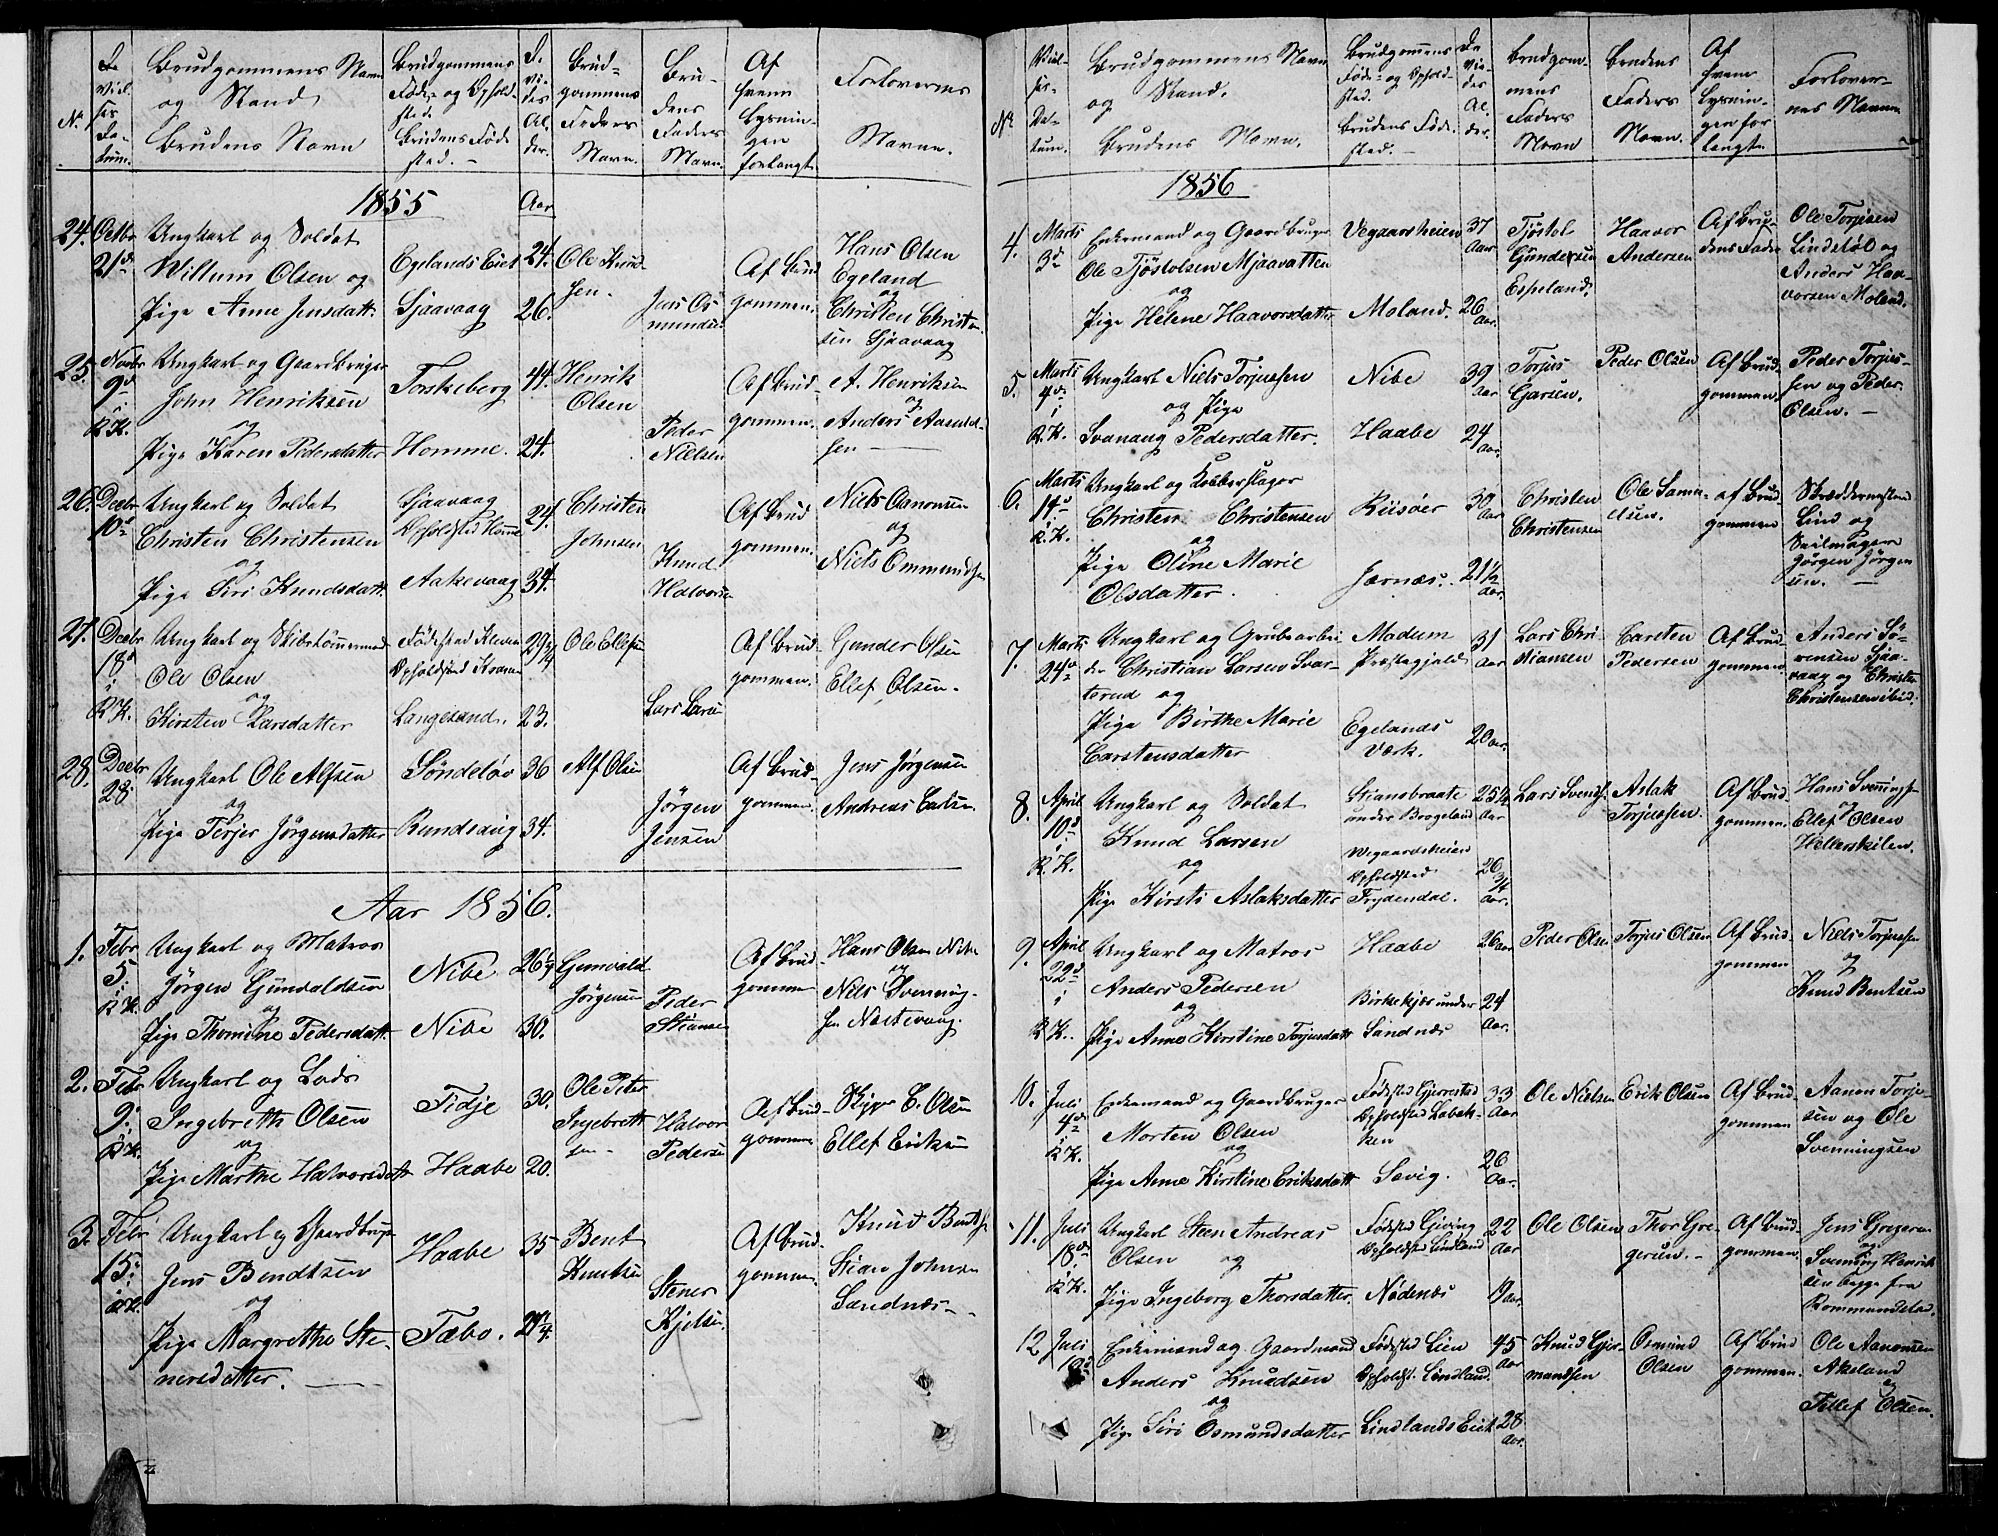 No.
De Viel-ses Da-tum.
Brudgommens Navn
og Stand
Brudens Navn
Brudgommens
Føde og Ophold-
sted
Brudens Føde
sted. -
De Vi-des Al-der.
Brud-
gommens
Faders
Navn.
Bru-
dens
Faders
Navn.
Af
hvem
Lysnin-
gen
forlangt.
Forlovernes
Navne.
1855
Aar
24. Octbr 21de Ungkarl og Soldat
Willum Olsen og
Pige Anne Jensdatt.
Egelands Eiet
Sjaavaag
24.
26.
Ole Knud-
sen.
Jens Os-
mundsen
Af Brud
gommen.
Hans Olsen
Egeland
og
Christen Christen-
sen Sjaavaag
25. Novbr 9de i R.K. Ungkarl og Gaardbruger
John Henriksen
og
Pige Karen Pedersdatter
Torskeberg
Homme.
44.
24.
Henrik
Olsen
Peder
Nielsen
Af Brud
gommen.
A. Henriksen
og
Anders Aanund-
sen
26. Decbr 10de Ungkarl og Soldat
Christen Christensen
og
Pige Siri Knudsdatt.
Sjaavaag
Opholdsted Homme
Aakevaag
24.
34.
Christen
Johnsen
Knud
Halvorsen
Af Brud
gommen.
Niels Aanonsen
og
Niels Ommundsen
27. Decbr 18de i R.K. Ungkarl og Skibstømmermand
Ole Olsen
og
Kirsten Larsdatter
Fødested Kleven
Opholdsted Kranen
Langesand.
29 1/4
23.
Ole Ellefsen
Lars Larsen
Af Brud-
gommen.
Gunder Olsen
Ellef Olsen.
28. Decbr 28. Ungkarl Ole Alfsen
og
Pige Terjer Jørgensdatter
Søndeløv
Rundsaug
36
34.
Alf Olsen
Jørgen
Jensen
Af Brud-
gommen.
Jens Jørgensen
Andreas
Aar 1856.
1. Febr 5. i R.K. Ungkarl og Matros
Jørgen Gundaldsen
og
Pige Thomine Pedersdatt.
Nibe
Nibe
26 1/4
30.
Gunvald
Jørgensen
Peder
Stiansen
Af Brud-
gommen
Hans Olsen Nibe
og
Niels Svenning-
sen Næstevaag.
2. Febr 9. i R.K. Ungkarl og Lods
Ingebreth Olsen
og
Pige Marthe Halvorsdatt
Fidje
Haabe
30.
20.
Ole Peter
Ingebreth
sen
Halvor
Pedersen
Af Brud-
gommen
E. Olsen
Ellef Eriksen
3. Febr 15. i R.K. Ungkarl og Gaardbruger
Jens Bendtsen
og
Pige Margrethe Ste-
nersdatter.
Haabe
Tæbo.
35
21 1/4.
Bent
Knutsen
Stener
Kjelsen.
Af Brud-
gommen.
Knud Bentsen
Stian Johnsen
Sandnæs
No.
Viel-
ses-
Da-
tum.
Brudgommens Navn
og Stand.
Brudens Navn.
Brudgommens
Føde- og Ophold-
sted.
Brudens Føde-
sted. -
De
Vie-
des
Al-
der.
Brudgom-
mens
Faders
Navn
Brudens
Faders
Navn.
Af
hvem
Lysnin-
gen for-
langt
Forlover-
nes Navne
1856
4. Marts 3de Enkemand og Gaardbruger
Ole Tjøstolsen Mjaavatten
og
Pige Helene Haavorsdatter
Vegaarsheien
Moland.
37 Aar
26 Aar.
Tjøstol
Gundersen
Espeland.
Haavor
Andersen
Af Bru-
dens Fader
Ole Torjusen
Lindstøl og
Anders Haa-
vorsen Moland.
5. Marts 4de i R.K. Ungkarl Niels Torjussen
og Pige
Svanaug Pedersdatter.
Nibe
Haabe
39 Aar
24 Aar.
Torjus
Garsen.
Peder Olsen
Af Brud-
gommen.
Peder Torjus-
sen og Peder
Olsen. -
6. Marts 14de i R.K. Ungkarl og Kobberslager
Christen Christensen
og
Pige Oline Marie
Olsdatter.
Riisøer
Jærnæs.
30 Aar
21 1/2 Aar.
Christen
Christensen
Ole Samu-
elsen.
af Brud
gommen
Skræddermester
Lind og
Seilmager
Jørgen Jørgen
sen. -
7. Marts 24de Ungkarl og Grubearbei-
der Christian Larsen Svar-
terud og
Pige Birthe Marie
Carstensdatter
Modum
Præstegjeld
Egelands
Værk.
31 Aar
20 Aar.
Lars Chri-
stiansen
Carsten
Pedersen
Af Brud
gommen
Anders Sø-
rensen Sjaa-
vaag og Christen
Christensen ibid.
8. April 10de i R.K. Ungkarl og Soldat
Knud Larsen
og
Pige Kirsti Aslaksdatter
Stiansbraate
under Bergeland
Wegaardsheien
Opholdsted
Frydendal.
25 1/4 Aar
26 3/4 Aar.
Lars Svends.
Aslak
Torjussen.
Af Brud
gommen.
Hans Svennings.
og
Ellef Olsen
Hellerskilen.
9. April 22de i R.K. Ungkarl og Matros
Anders Pedersen
og
Pige Anne Kirstine Torjusdatt
Haabe
Birkekjær under
Sandnæs
26 Aar
24 Aar.
Peder Olsen
Torjus Olsen
Af Brud
gommen
Niels Torjussen
og
Knud Bentsen
10. Juli 4de i R.K. Enkemand og Gaardbruger
Morten Olsen
og
Pige Anne Kirstine Eriksdatt
Fødsted Gjerrestad
Opholdsted Labak-
ken
Savig.
33 Aar
26 Aar.
Ole Nielsen
Erik Olsen
Af Brud
gommen
Aanon Torju-
sen og Ole
Svenningsen
11. Juli 18de i R.K. Ungkarl Steen Andreas
Olsen og
Pige Ingeborg Thorsdatter.
Fødsted Giving
Opholdsted Lindland
Nødenæs
22 Aar
19 Aar.
Ole Olsen
Thor Gre-
gersen. -
Af Brud
gommen.
Jens Gregersen
og
Svening Henrik
sen begge fra
Kommandstad.
12 Juli 19de Enkemand og Gaardmand
Anders Knudsen
og
Pige Siri Osmundsdatter
Fødsted Lien
Opholdst. Lindland.
Lindlands Eiet
45 Aar
28 Aar.
Knud Gjer-
mundsen
Osmund
Olsen
Af Brud
gommen.
Ole Aanonsen
Akeland
og
Tellef Olsen.